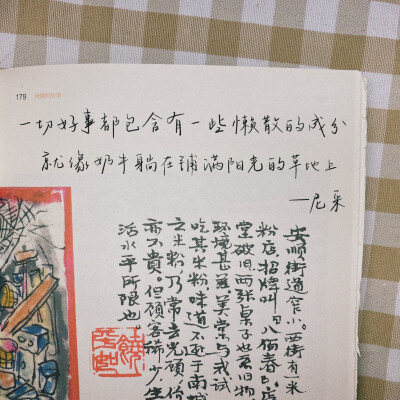 179
一切好事都包含有一些懒散的成分
就像奶牛躺在铺满阳光的草地上
—尼采
安顺街道窄小。西街有米
粉店,招牌叫
堂破旧,两张桌子也系旧物
环境甚匪美
吃其米粉味道不亚于
之米粉乃常去光顾,份
亦不贵。但顾客稀少,生
活水平所限也。